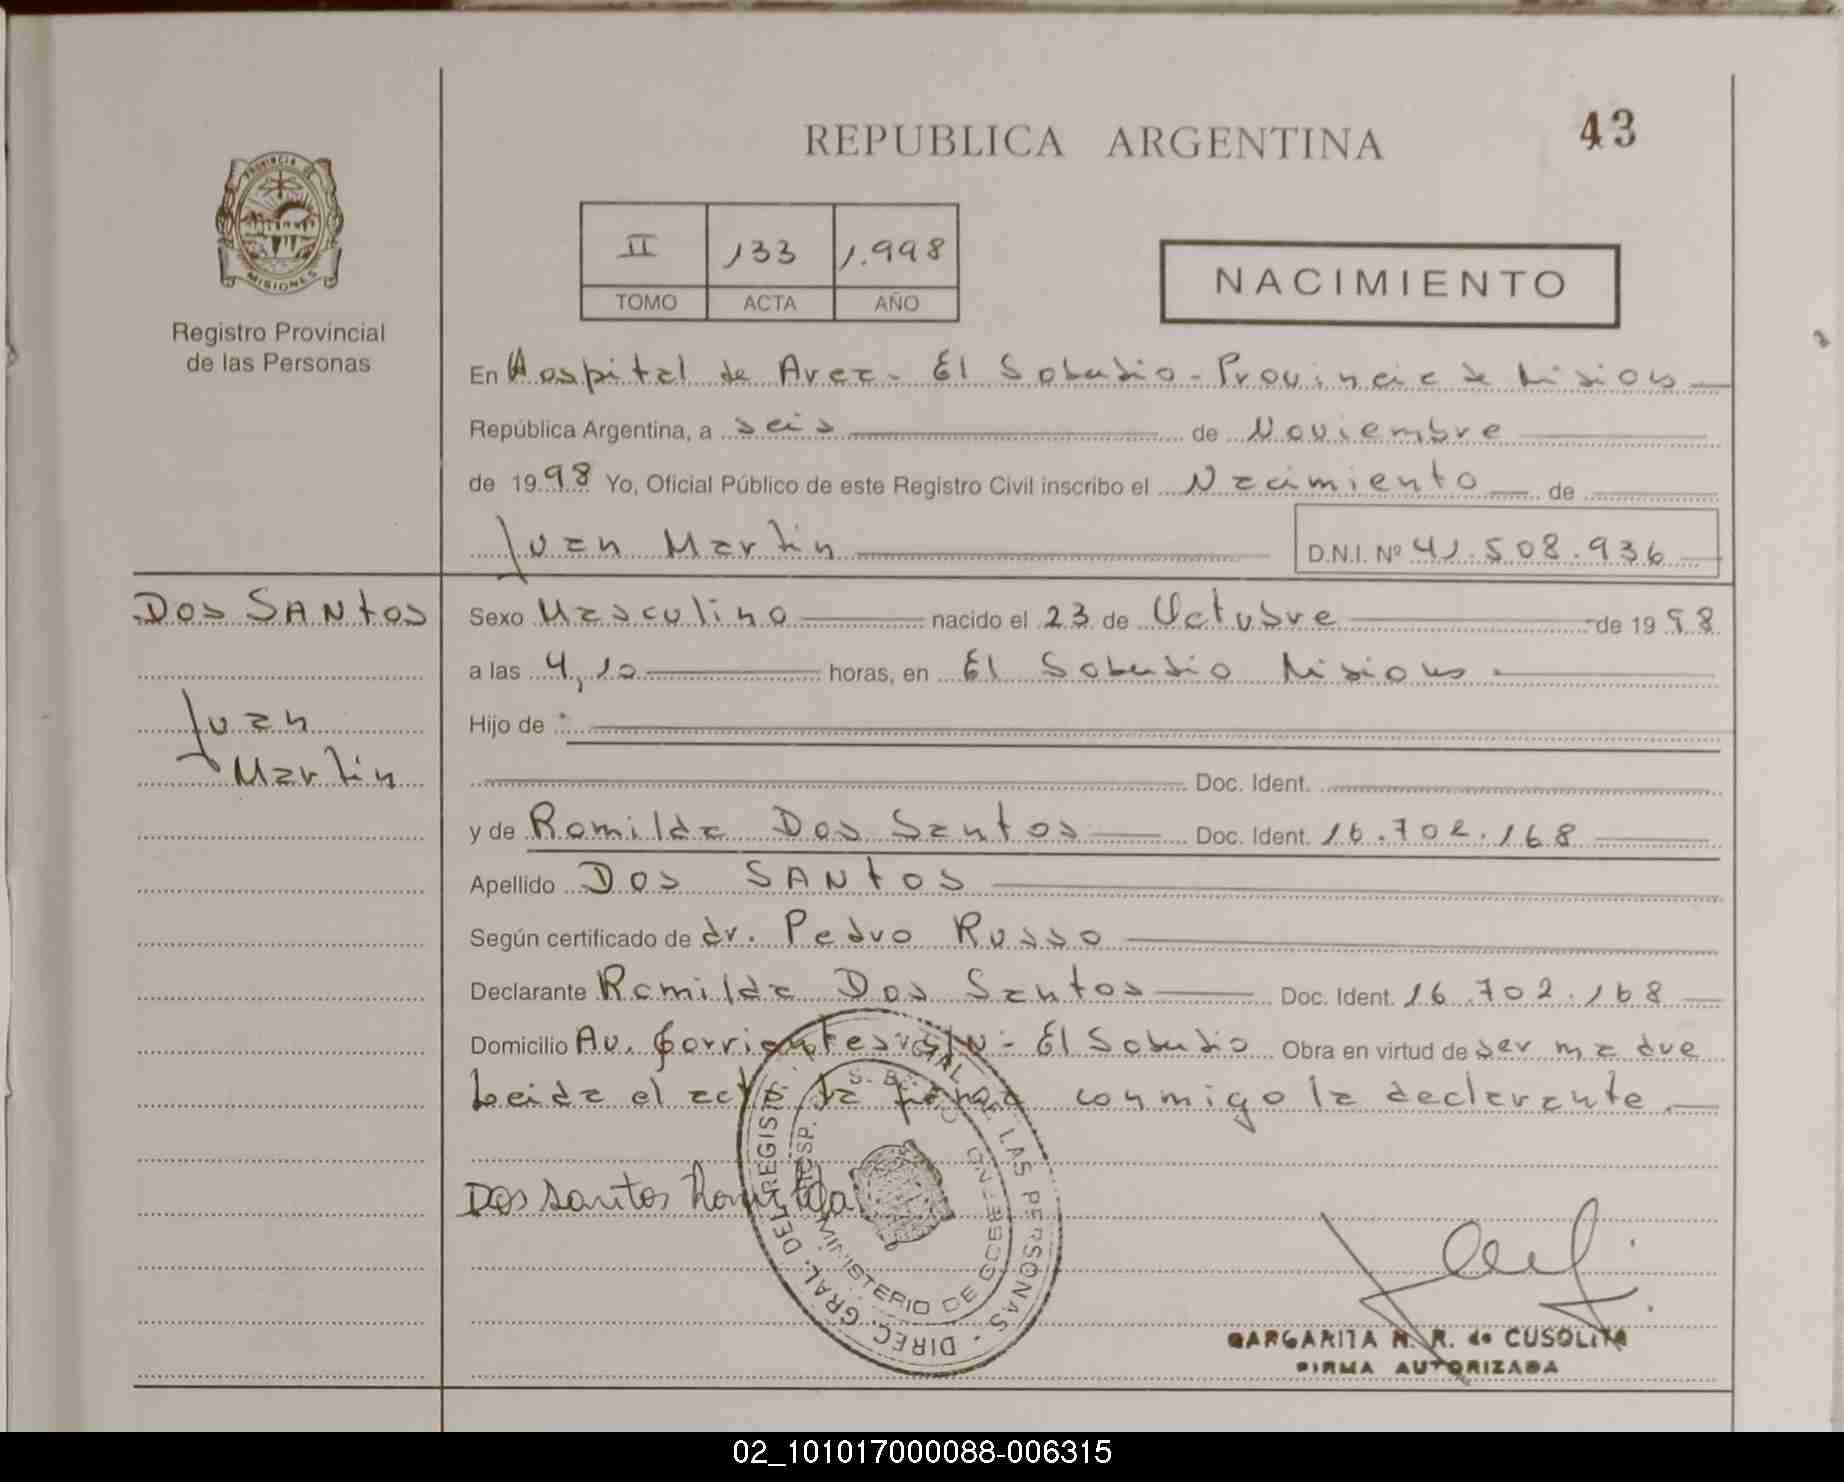 43
REPUBLICA ARGENTINA
PROVINCIA DE
MISIONES
Registro Provincial
de las Personas
II 133 1.998
TOMO ACTA AÑO
NACIMIENTO
En Hospital de Area - El Soberbio - Provincia de Misiones
República Argentina, a seis de Noviembre
de 1998 Yo, Oficial Público de este Registro Civil inscribo el Nacimiento de
Juan Martin D.N.I. Nº 41.508.936
DOS SANTOS
Juan
Martin
Sexo Masculino nacido el 23 de Octubre de 1998
a las 4,10 horas, en El Soberbio Misiones
Hijo de
Doc. Ident.
y de Romilda Dos Santos Doc. Ident. 16.702.168
Apellido DOS SANTOS
Según certificado de dr. Pedro Russo
Declarante Romilda Dos Santos Doc. Ident. 16.702.168
Domicilio Av. Corrientes s/n - El Soberbio Obra en virtud de ser madre
Leida el acta la firma conmigo la declarante.
Dos Santos Romilda
DIREC. GRAL. DEL REGISTR. PROVINCIAL DE LAS PERSONAS
MINISTERIO DE GOBIERNO
MARGARITA N. R. de CUSOLITO
FIRMA AUTORIZADA
02_101017000088-006315